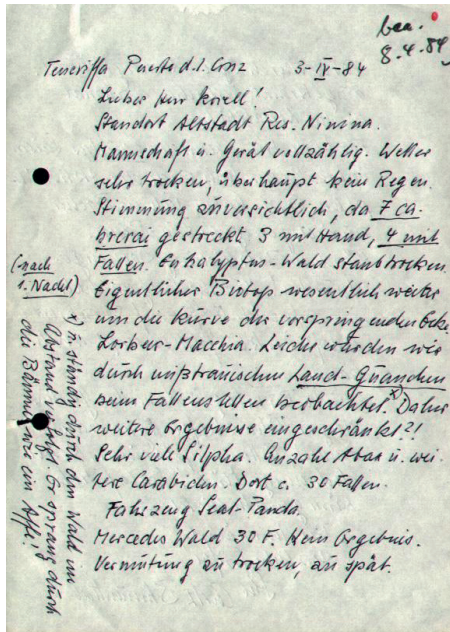 bea.
8.4.84
Teneriffa Puerto d.l. Cruz 3-IV-84
Lieber Herr Korell!
Standort Altstadt Res. Ninina.
Mannschaft u. Gerät vollzählig. Wetter
sehr trocken, überhaupt kein Regen.
Stimmung zuversichtlich, da 7 ca-
brerai gestreckt 3 mit Hand, 4 mit
Fallen. Eukalyptus-Wald staubtrocken.
(nach
1. Nacht)
Eigentlicher Biotop wesentlich weiter
um die Kurve der vorspringenden Ecke
Lorbeer-Macchia. Leider wurden wir
durch mißtrauischen Land-Guanchen
beim Fallenstellen beobachtet. x) Daher
weitere Ergebnisse eingeschränkt?!
Sehr viele Silpha. Anzahl Abax u. wei-
tere Carabiden. Dort c. 30 Fallen.
Fahrzeug Seat-Panda.
Mercedes Wald 30 F. Kein Ergebnis.
Vermutung zu trocken, zu spät.
x) u. ständig durch den Wald im
Abstand verfolgt. Er sprang durch
die Bäume wie ein Affe!